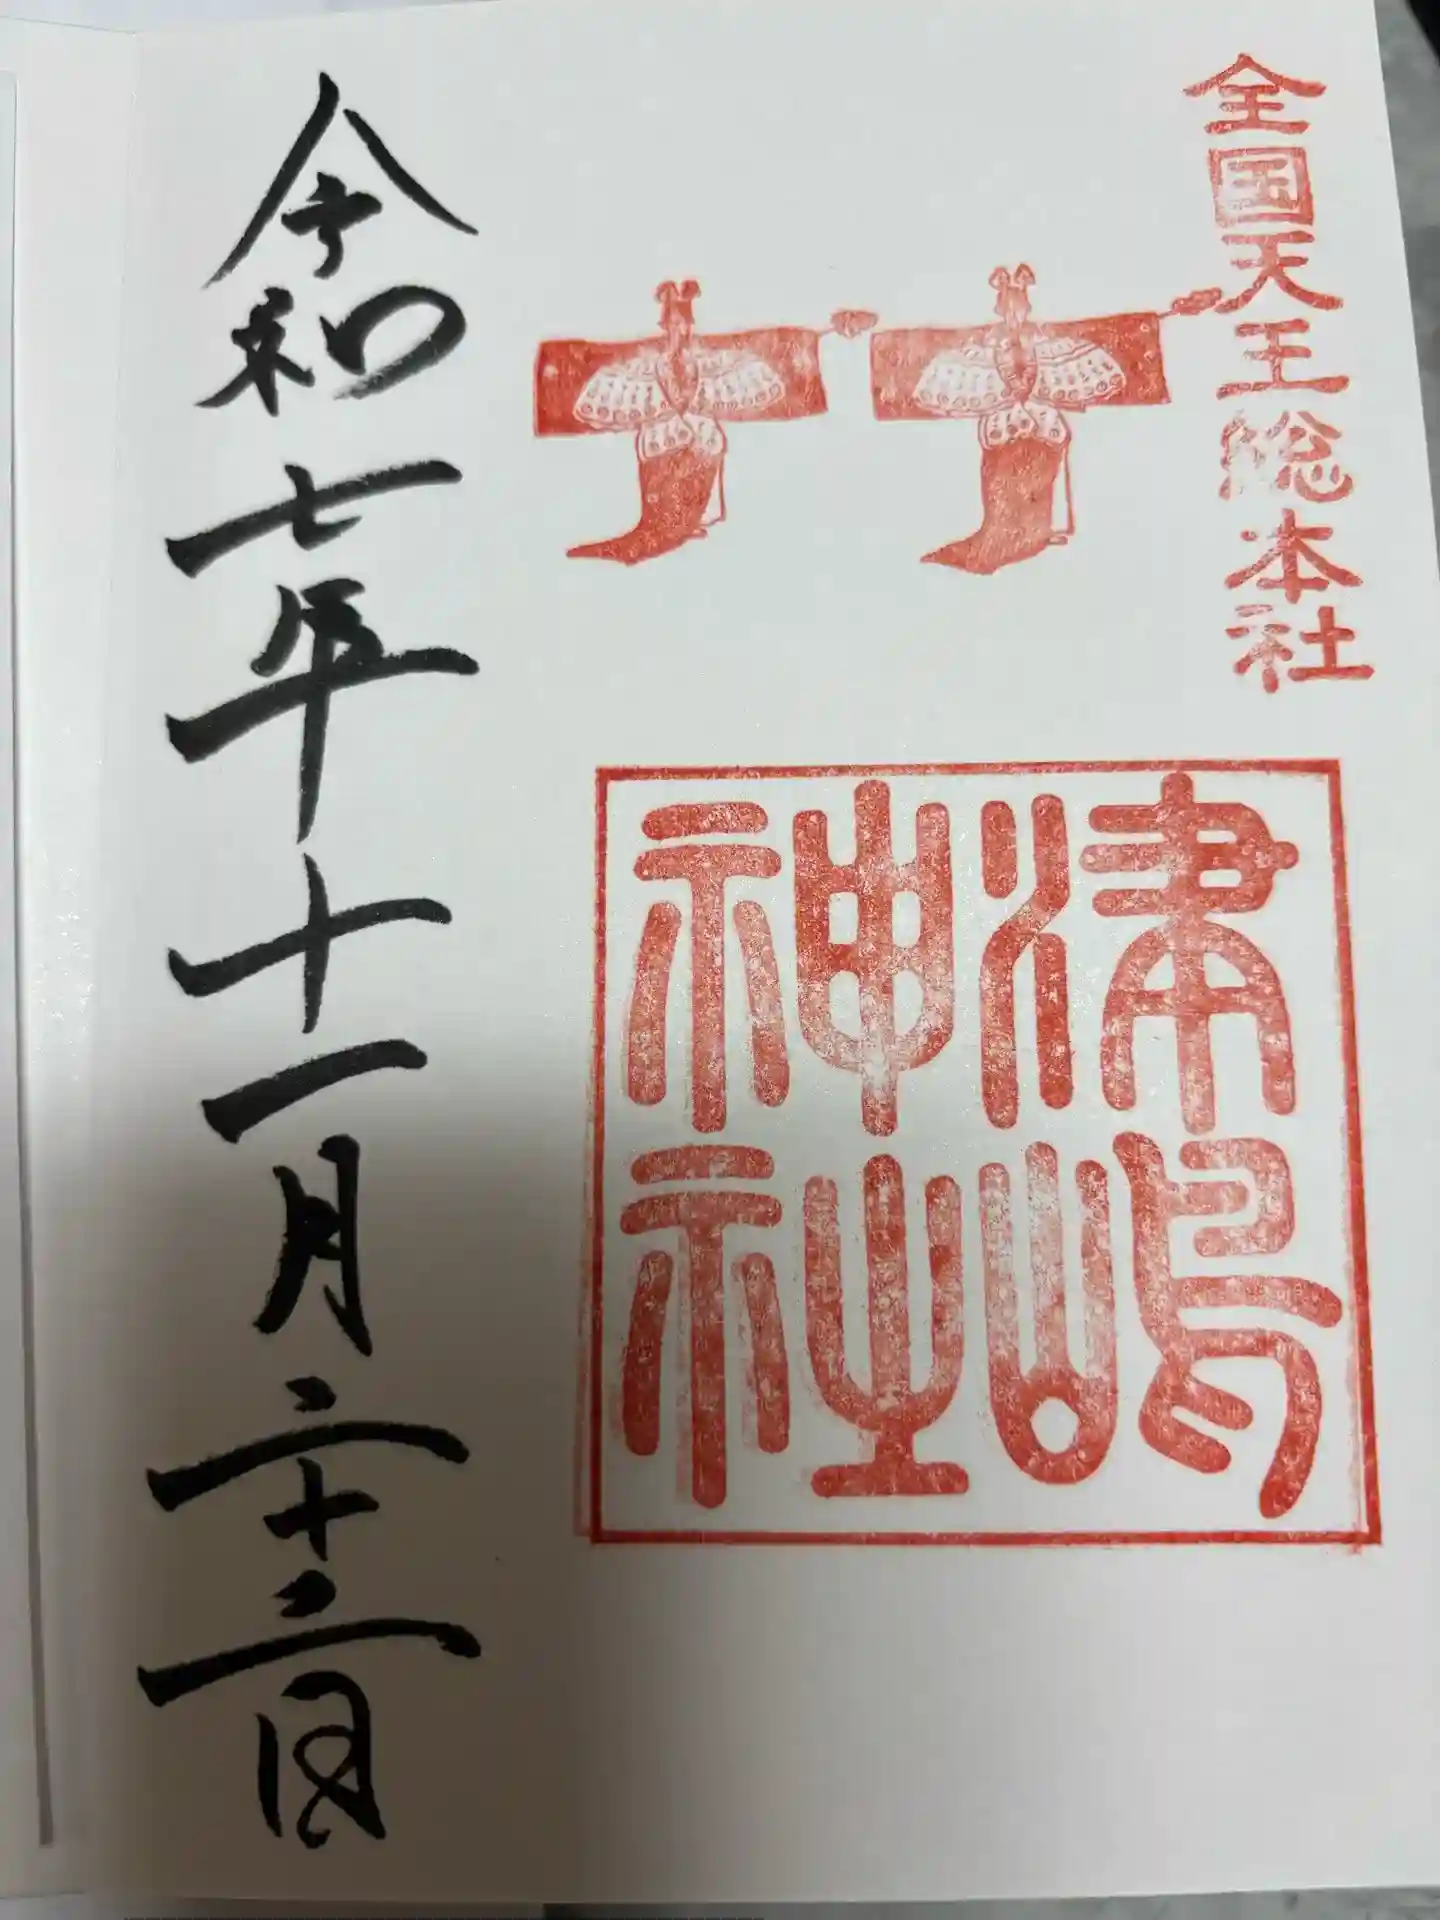 全国天王総本社
津嶋
神社
令和七年十一月二十三日